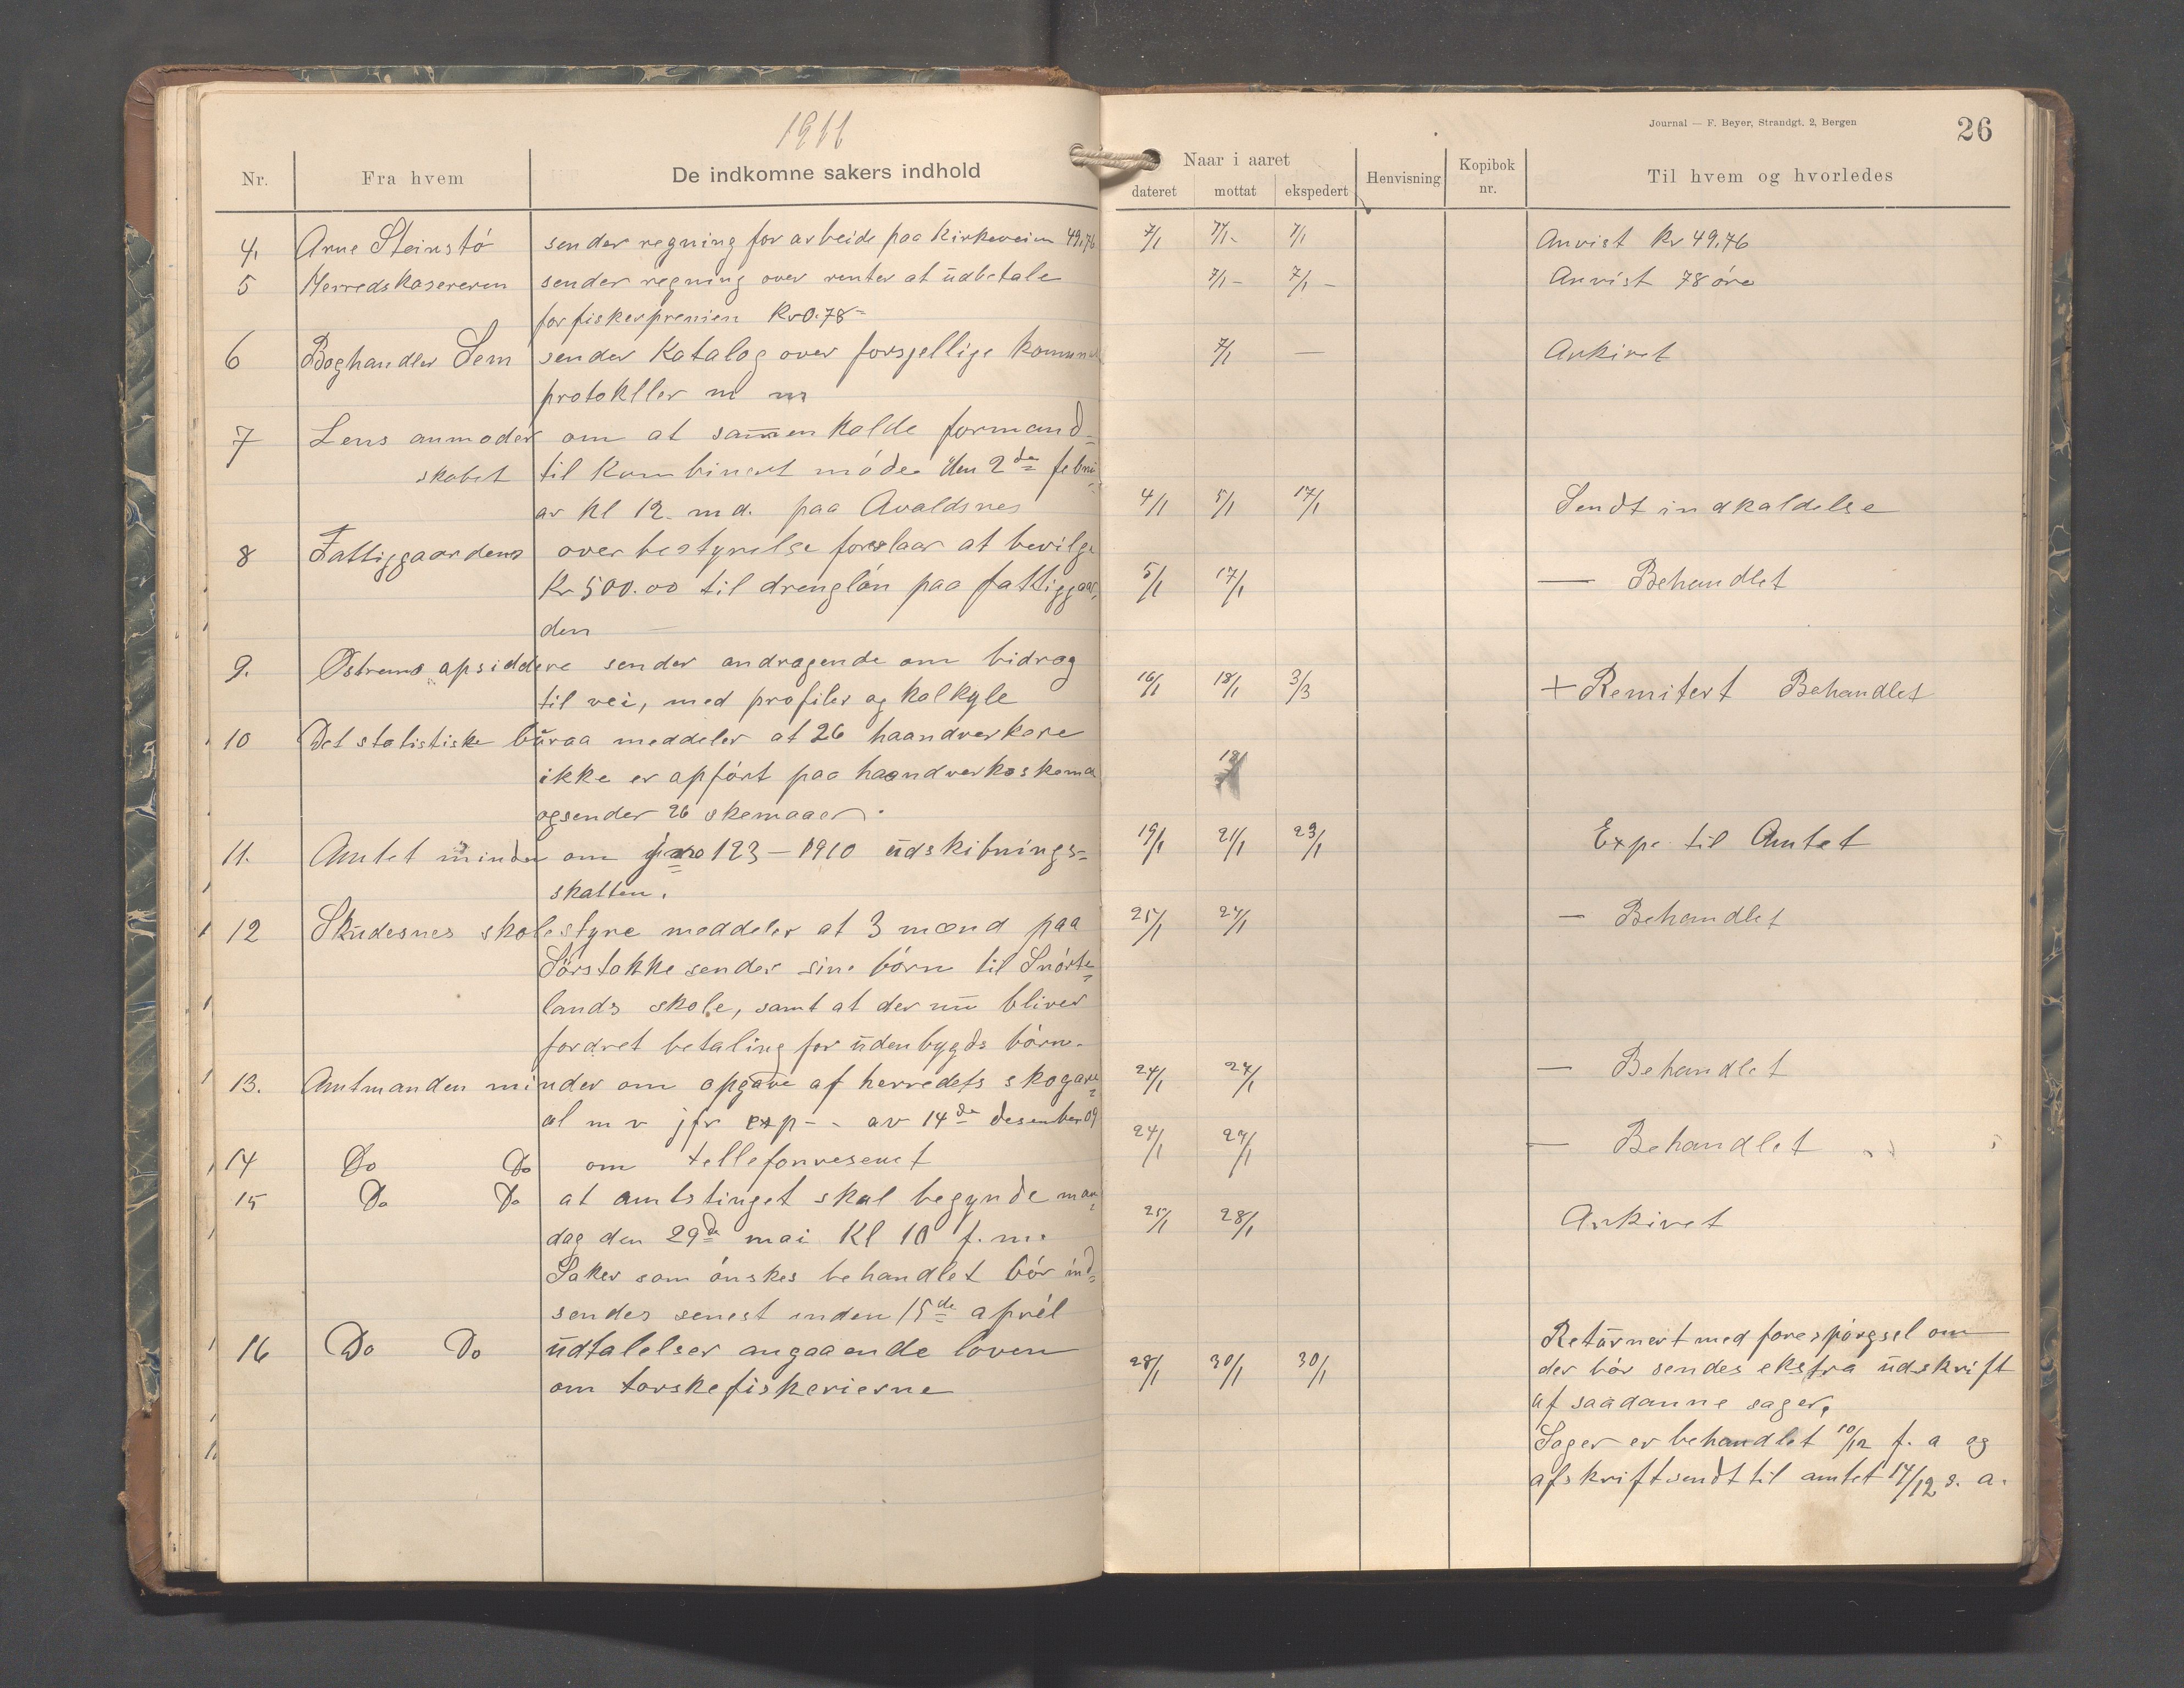 1911
Journal — F. Beyer, Strandgt. 2, Bergen
26
Nr. Fra hvem De indkomne sakers indhold Naar i aaret Henvisning Kopibok nr. Til hvem og hvorledes
dateret mottat ekspedert
4, Arne Steinstó sender regning for arbeide paa Kirkeveien 49,76 7/1 7/1- 7/1 Anvist Kr 49.76
5 Herredskasereren sender regning over renter at udbetale 7/1- 7/1- Anvist 78 øre
for fiskerpremien Kr 0.78-
6 Boghandler Sem sender Katalog over forsjellige komunal 7/1 — Arkivet
protokller m m
7 Lens anmoder om at sammenkalde formand-
skabet til Kombinert móde den 2de febru-
ar Kl 12 md. paa Avaldsnes 4/1 5/1 17/1 Sendt indkaldelse
8 Fattiggaardens overbestyrelse forslaar at bevilge
Kr 500.00 til drenglón paa fattiggaar- 5/1 17/1 — Behandlet
den
9. Østrems opsiddere sender andragende om bidrag
til vei, med profiler og kalkyle 16/1 18/1 3/3 + Remitert Behandlet
10 Det statistiske büraa meddeler at 26 haandverkere
ikke er opfórt paa haandverksskema 18/1
og sender 26 skemaaer.
11. Amtet minder om jno 123-1910 üdskibnings- 19/1 21/1 23/1 Expe til Amtet
skatten.
12 Skudesnes skolestyre meddeler at 3 mænd paa 25/1 27/1 — Behandlet
Sörstokke sender sine börn til Snórte-
lands skole, samt at der nü bliver
fordret betaling for üdenbygds börn.
13. Amtmanden minder om opgave af herredets skogare- 24/1 27/1 — Behandlet
al m v jfr exp-- av 14de desember 09
14 Do Do om tellefonvesenet 24/1 27/1 — Behandlet
15 Do Do at amtstinget skal begynde man-
dag den 29de mai Kl 10 f.m. 25/1 28/1 Arkivet
Saker som ónskes behandlet bór ind-
sendes senest inden 15de aprél
16 Do Do üdtalelser angaaende loven
om torskefiskerierne 28/1 30/1 30/1
Retürnert med forespórgsel om
der bór sendes ekstra üdskrift
af saadanne sager.
Sager er behandlet 10/12 f. a og
afskrift sendt til amtet 14/12 s. a.